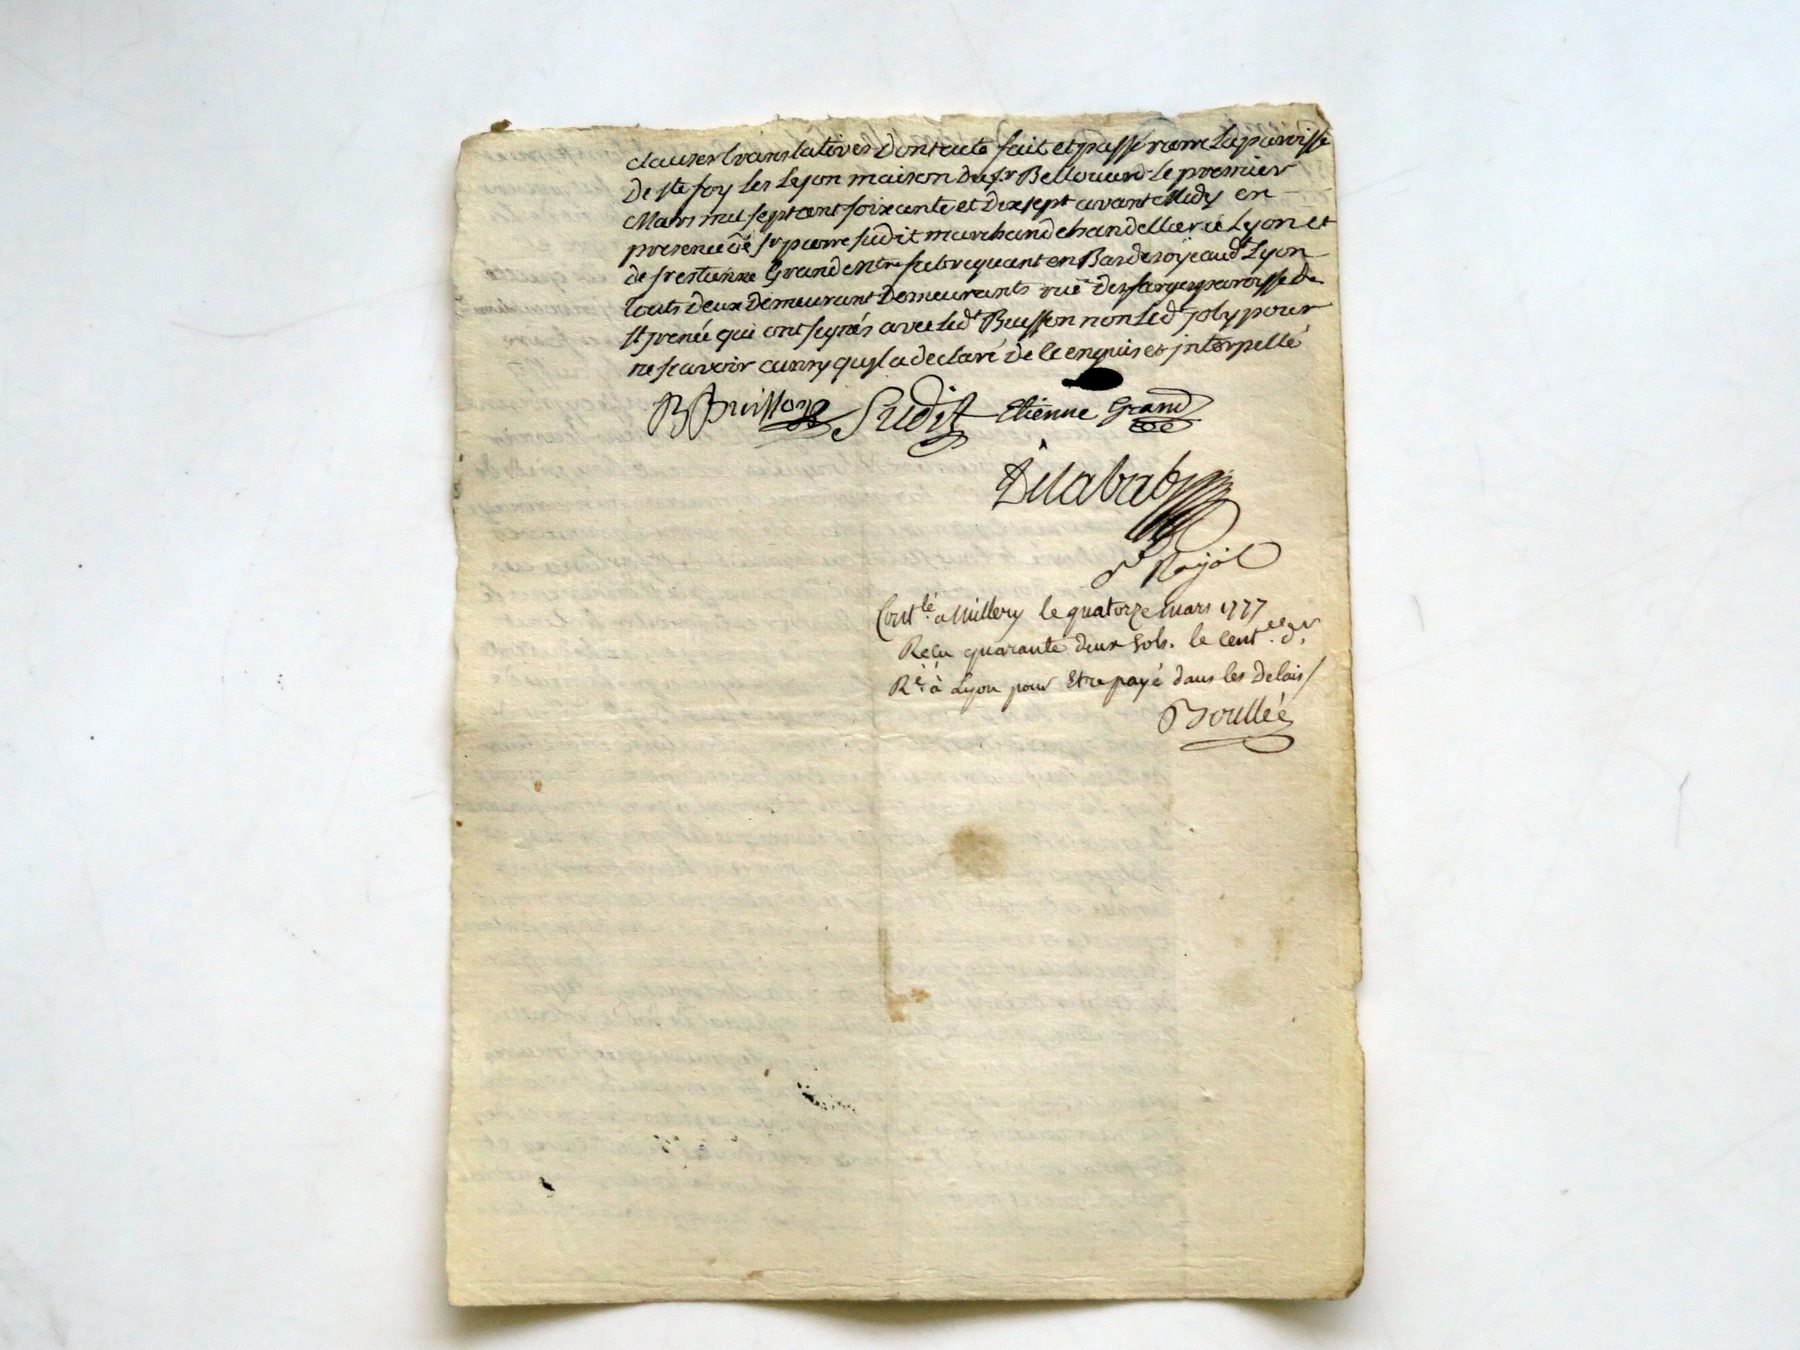 clauses translatives Dont acte fait et passé la paroisse
De Ste foy Les Lyon maison du Sr Bellouard Le premier
Mars mil sept cent soixante et Dix sept avant Midy en
presence de Sr pierre Sudit marchand chandellier a Lyon et
de Sr estienne Grand me fabriquant en Bas de soÿe aud. Lyon
touts deux Demeurant Demeurants rue Des farges paroisse de
St irenée qui ont signés avec Led. Buisson non Led. joly pour
ne scavoir quyl a declaré de ce enquis et interpellé
B Buisson Sudit Etienne Grand
Delabal
Nor Royal
Contlé a Millery le quatorze mars 1777
Reçu quarante deux sols. le cent.
Ré. à Lyon pour Etre payé dans les Delais /
Boullée